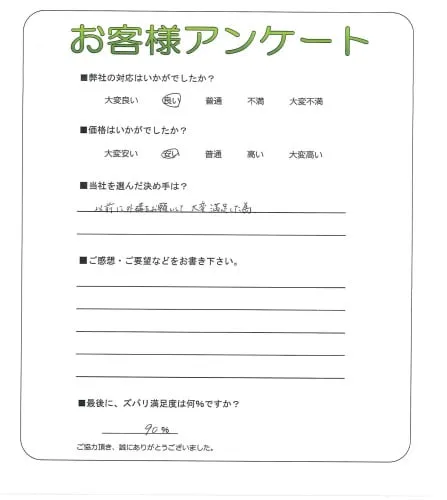 お客様アンケート
■弊社の対応はいかがでしたか？
大変良い 良い 普通 不満 大変不満
■価格はいかがでしたか？
大変安い 安い 普通 高い 大変高い
■当社を選んだ決め手は？
以前に外構をお願いして大変満足した為
■ご感想・ご要望などをお書き下さい。
■最後に、ズバリ満足度は何%ですか？
90%
ご協力頂き、誠にありがとうございました。